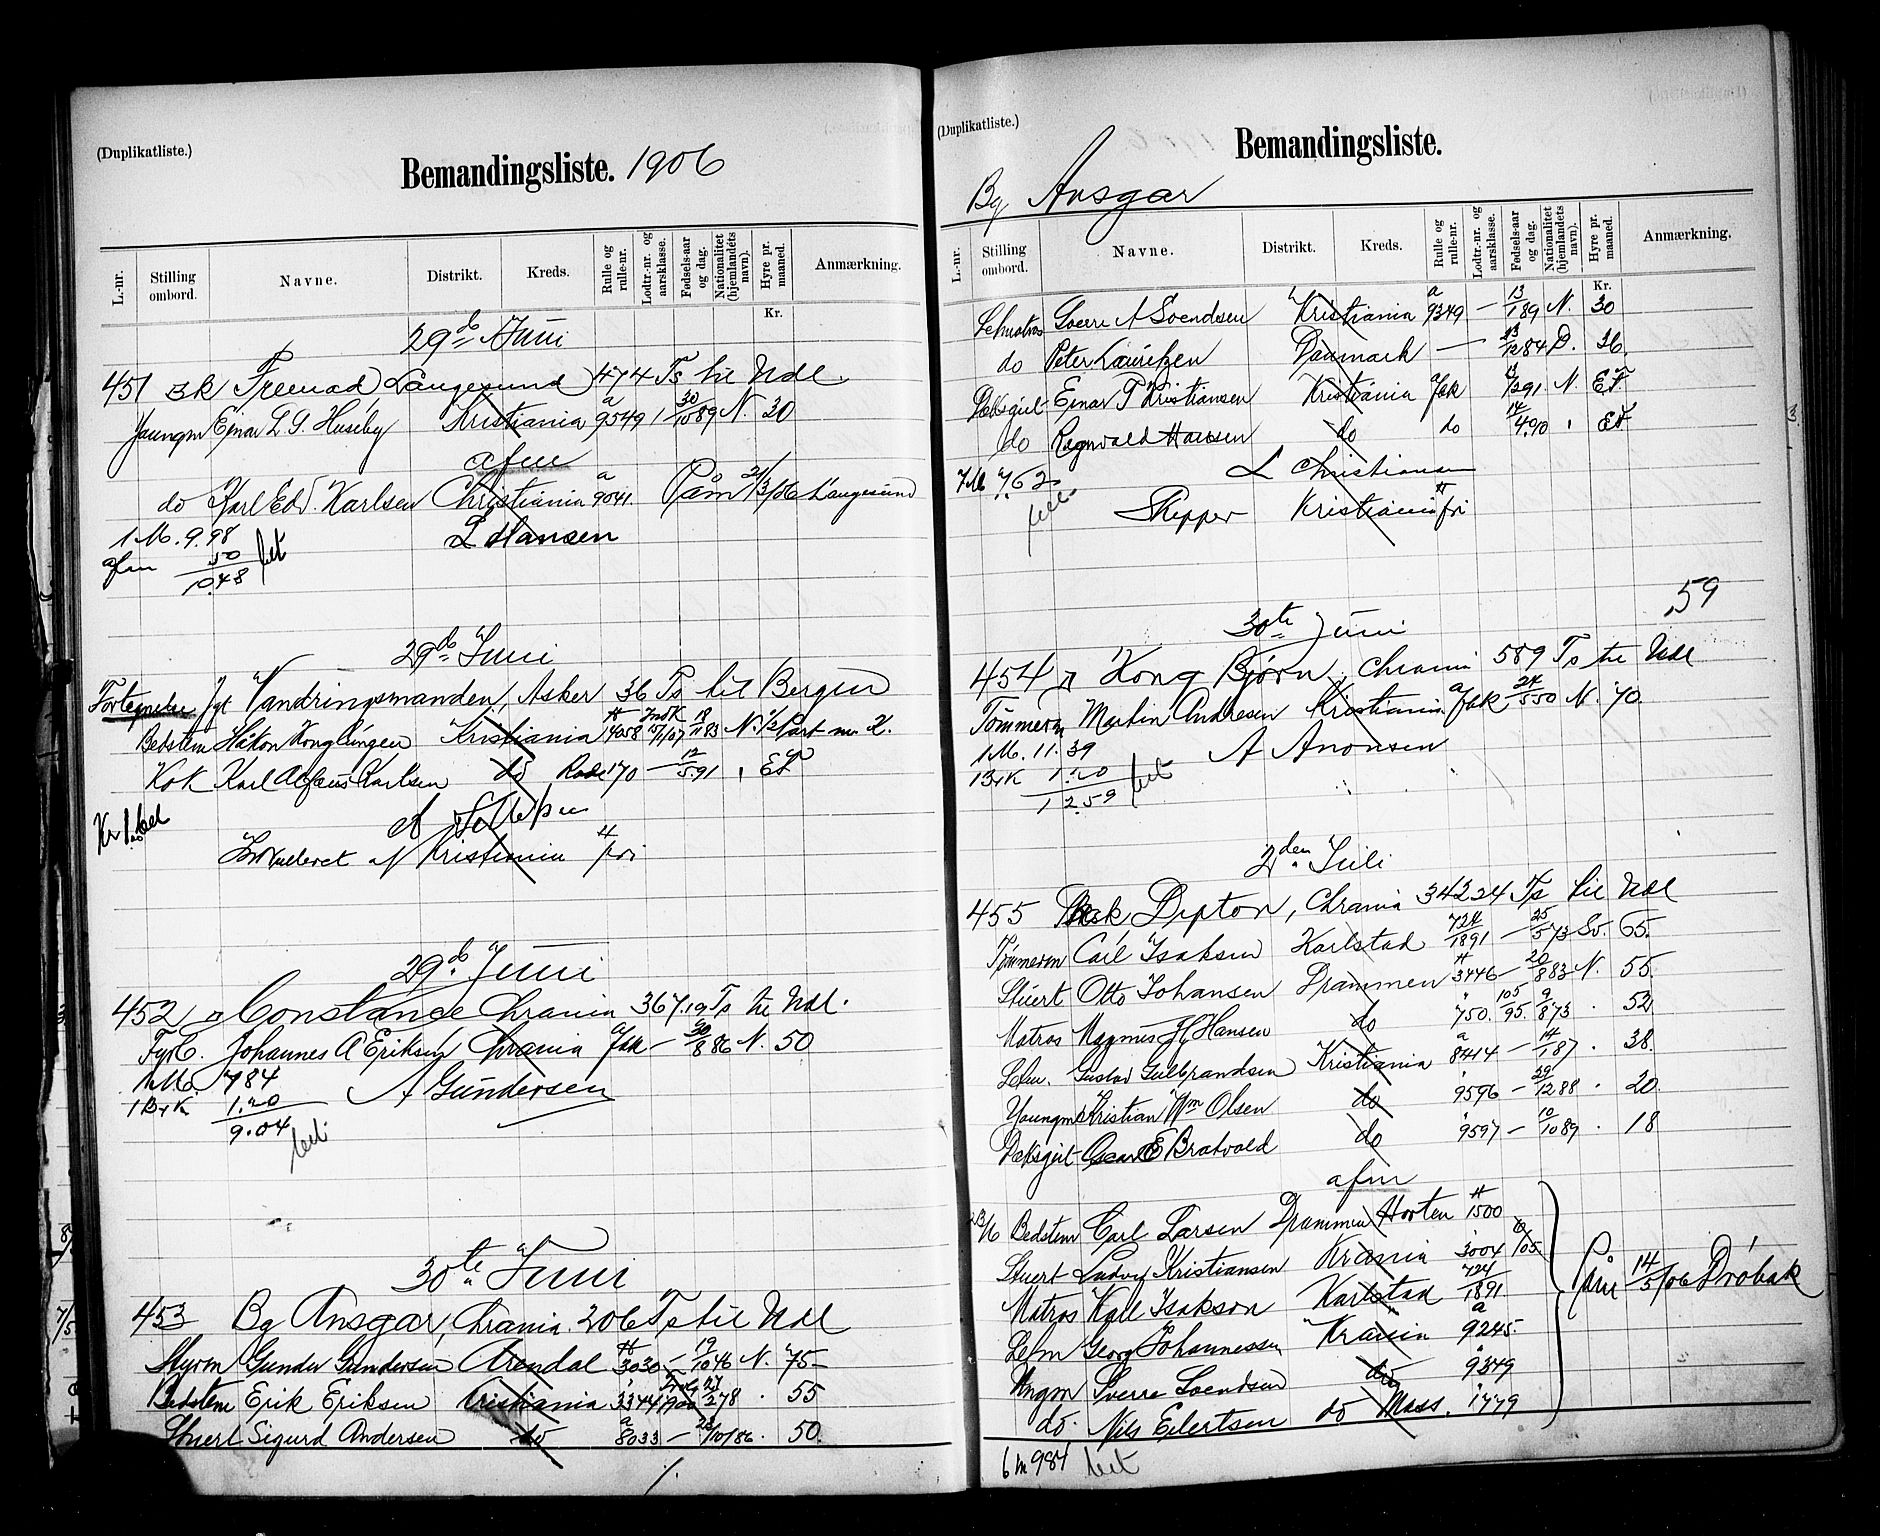 (Duplikatliste.)
Bemandingsliste. 1906
L.-nr. Stilling ombord. Navne. Distrikt. Kreds. Rulle og rulle-nr. Lodtr.-nr. og aarsklasse. Fødsels-aar og dag. Nationalitet (hjemlandets navn). Hyre pr. maaned. Anmærkning.
Kr.
29de Juni
451 sk Fremad, Langesund 474 Ts til Udl.
Jaungm Ejnar L. G. Huseby Kristiania a 9549 1 30/10 89 N. 30
afm
do Karl Ed. Karlsen Christiania a 9041. Påm 21/3/06 Langesund
1 M. 9.98 L Hansen
afm 50 bet
10.48
29de Juni
Fortegnelse Jgt Vandringsmanden, Asker 36 Ts til Bergen
Bedstem Håkon Kongslingen Kristiania H 4058 18/11 83 N. 1/2 Part
Kok Karl Alfons Karlsen do 170 — 12/5 91 " EF
Kr 1. bet
Kristiania H fri
29de Juni
452 Constance Chrania 367.19 Ts til Udl.
Fyrb. Johannes A Eriksen Chrania a/fsk — 30/8 86 N. 50
1 M 784 A Gundersen
1 B & K 1.20
9.04
bet.
30te Juni
453 Bg Ansgar, Chrania. 206 Ts til Udl
Styrm Gunder Gundersen Arendal H 3030 — 19/10 46 N. 75 —
Bedstem Erik Eriksen Kristiania 3344 1900 27/2 78 . 55
Stuert Sigurd Andersen do a 8033 — 23/10/86 . 50.
/.
(Duplikatliste.)
Bemandingsliste.
Bg Ansgar
L.-nr. Stilling ombord. Navne. Distrikt. Kreds. Rulle og rulle-nr. Lodtr.-nr. og aarsklasse. Fødsels-aar og dag. Nationalitet (hjemlandets navn). Hyre pr. maaned. Anmærkning.
Kr.
Letmatros Sverre A Svendsen Kristiania a 9349 — 13/1 89 N. 30
do Peter Lauritzen Danmark — 13/12 84 D. 36.
Dæksgut Ejnar T Kristiansen Kristiania a/fsk 91 N. EF
do Ragnvald Hansen do do 14/4 90 " EF
7 M 762 L Christiansen
bet
Skipper Kristiania H fri
59
30te Juni
454 Kong Bjørn, Chrania 589 Ts til Udl
Tømmerm Martin Andresen Kristiania a/fsk 24/5 50 N. 70.
1 M. 11.39 A Aronsen
1 B & K 1.20 bet
12.59
2den Juli
455 Bk Dipton, Chrania 34224 Ts til Udl
Tømmerm Carl Isaksen Karlstad 724/1891 — 25/5 73 Sv. 65.
Stuert Otto Johansen Drammen H 3446 — 20/8 83 N. 55.
Matros Magnus H Hansen do " 750. 105/95. 9/8 73 . 52
Letm. Gustav Gulbrandsen Kristiania a 8414 — 14/1 87 . 38.
Youngm Kristian Wm Olsen do " 9596 — 29/12 88 . 20
Dæksgut Oscar E Bratvold do " 9597 — 10/10 89 . 18
afm
Bedstem Carl Larsen Drammen Horten H 1500
Stuert Ludvig Kristiansen Krania " 3004
Matros Karl Isakson Karlstad 724/1891 Påm 14/5/06 Drøbak
Letm Georg Johannessen Krania a 9245.
Ungm Sverre Svendsen do " 9349
do. Nils Eilertsen do Moss. " 1779
6 m 984 bet